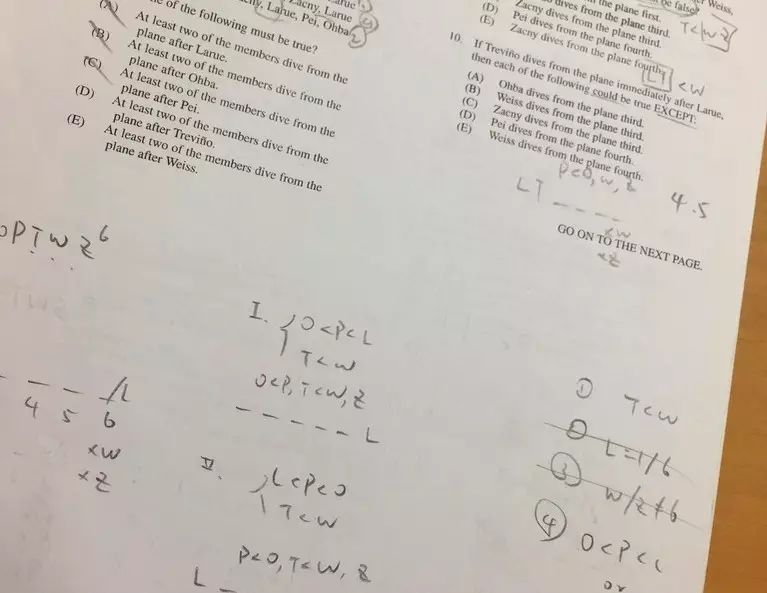 Zacny, Larue
Larue, Pei, Ohba
of the following must be true?
(A) At least two of the members dive from the
plane after Larue.
(B) At least two of the members dive from the
plane after Ohba.
(C) At least two of the members dive from the
plane after Pei.
(D) At least two of the members dive from the
plane after Treviño.
(E) At least two of the members dive from the
plane after Weiss.
the plane first.
dives from the plane third.
(D) Zacny dives from the plane third.
Pei dives from the plane fourth.
(E) Zacny dives from the plane fourth.
T<W
10. If Treviño dives from the plane immediately after Larue,
then each of the following could be true EXCEPT:
LT <W
(A) Ohba dives from the plane third.
(B) Weiss dives from the plane third.
(C) Zacny dives from the plane third.
(D) Pei dives from the plane fourth.
(E) Weiss dives from the plane fourth.
P<O, W, Z
LT _ _ _ _
xW
xZ
4.5
GO ON TO THE NEXT PAGE.
OPTWZ 6
_ _ _ /L
4 5 6
xW
xZ
I. O<P<L
T<W
O<P, T<W, Z
_ _ _ _ _ L
II. L<P<O
T<W
P<O, T<W, Z
L _
① T<W
② L=1/6
③ W/Z≠6
④ O<P<L
or